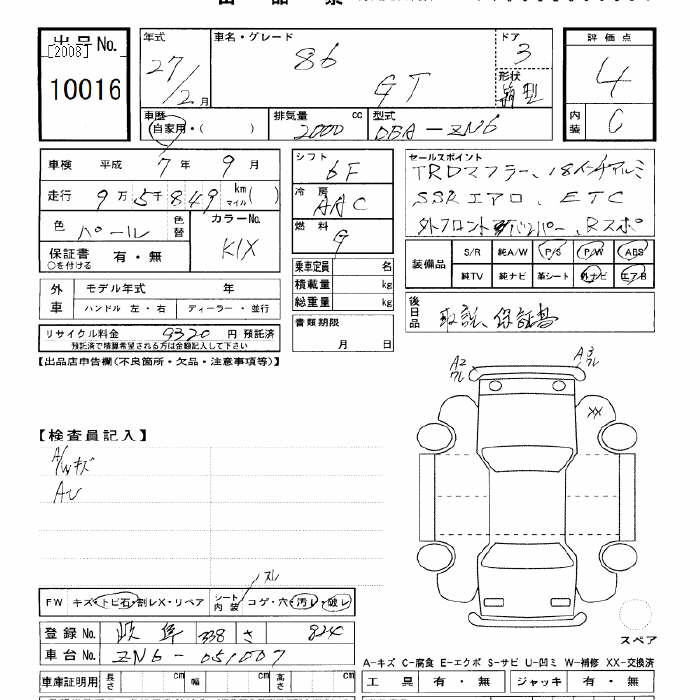 出品No. [2008] 10016
年式 27/2 月
車名・グレード 86 GT
ドア 3
形状 箱型
評価点 4
内装 C
車歴 自家用・( )
排気量 2000 cc
型式 DBA-ZN6
車検 平成 7年 9月
走行 9万5千849 km マイル( )
色 パール 色替
カラーNo. K1X
保証書 有・無
○を付ける
外車 モデル年式 年
ハンドル 左・右 ディーラー・並行
リサイクル料金 9320 円 預託済
預託済で精算希望される方は金額記入して下さい
シフト 6F
冷房 AAC
燃料 G
乗車定員 名
積載量 kg
総重量 kg
書類期限
月 日
セールスポイント
TRDマフラー、18インチアルミ
SSRエアロ、ETC
外フロントバンパー、Rスポ
装備品 S/R 純A/W P/S P/W ABS
純TV 純ナビ 革シート 外ナビ エアB
後日品 取説、保証書
【出品店申告欄(不良箇所・欠品・注意事項等)】
【検査員記入】
A/Wキズ
AU
A2 A3
XX
FW キズ・トビ石・割レX・リペア シート内装 コゲ・穴・汚レ・破レ
スレ
登録No. 338 さ 824
車台No. ZN6-051007
スペア
A-キズ C-腐食 E-エクボ S-サビ U-凹ミ W-補修 XX-交換済
車庫証明用 長さ cm 幅 cm 高さ cm
工具 有・無 ジャッキ 有・無